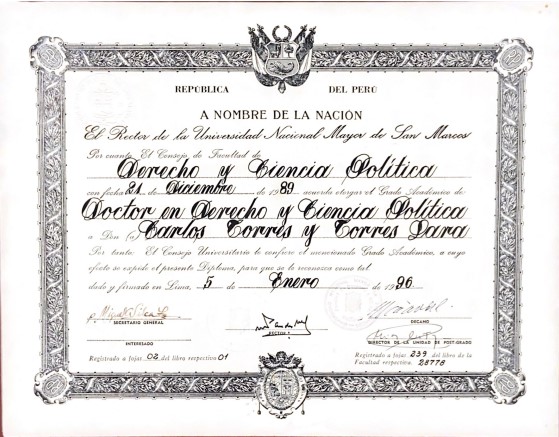 REPÚBLICA DEL PERÚ
A NOMBRE DE LA NACIÓN
El Rector de la Universidad Nacional Mayor de San Marcos
Por cuanto: El Consejo de Facultad de
Derecho y Ciencia Política
con fecha 21 de Diciembre de 1989 acuerda otorgar el Grado Académico de
Doctor en Derecho y Ciencia Política
a Don (a) Carlos Torres y Torres Lara
Por tanto: El Consejo Universitario le confiere el mencionado Grado Académico, a cuyo
efecto se expide el presente Diploma, para que se le reconozca como tal
dado y firmado en Lima, 5 de Enero de 1996.
SECRETARIO GENERAL
RECTOR
DECANO
INTERESADO
DIRECTOR DE LA UNIDAD DE POST-GRADO
Registrado a fojas 02 del libro respectivo 01
Registrado a fojas 239 del libro de la
Facultad respectiva 28778